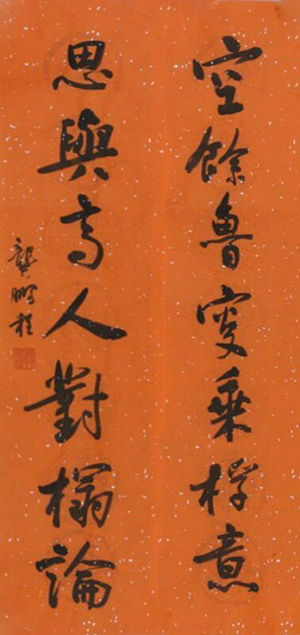 空餘魯叟乘桴意
思與高人對榻論
龔鵬程